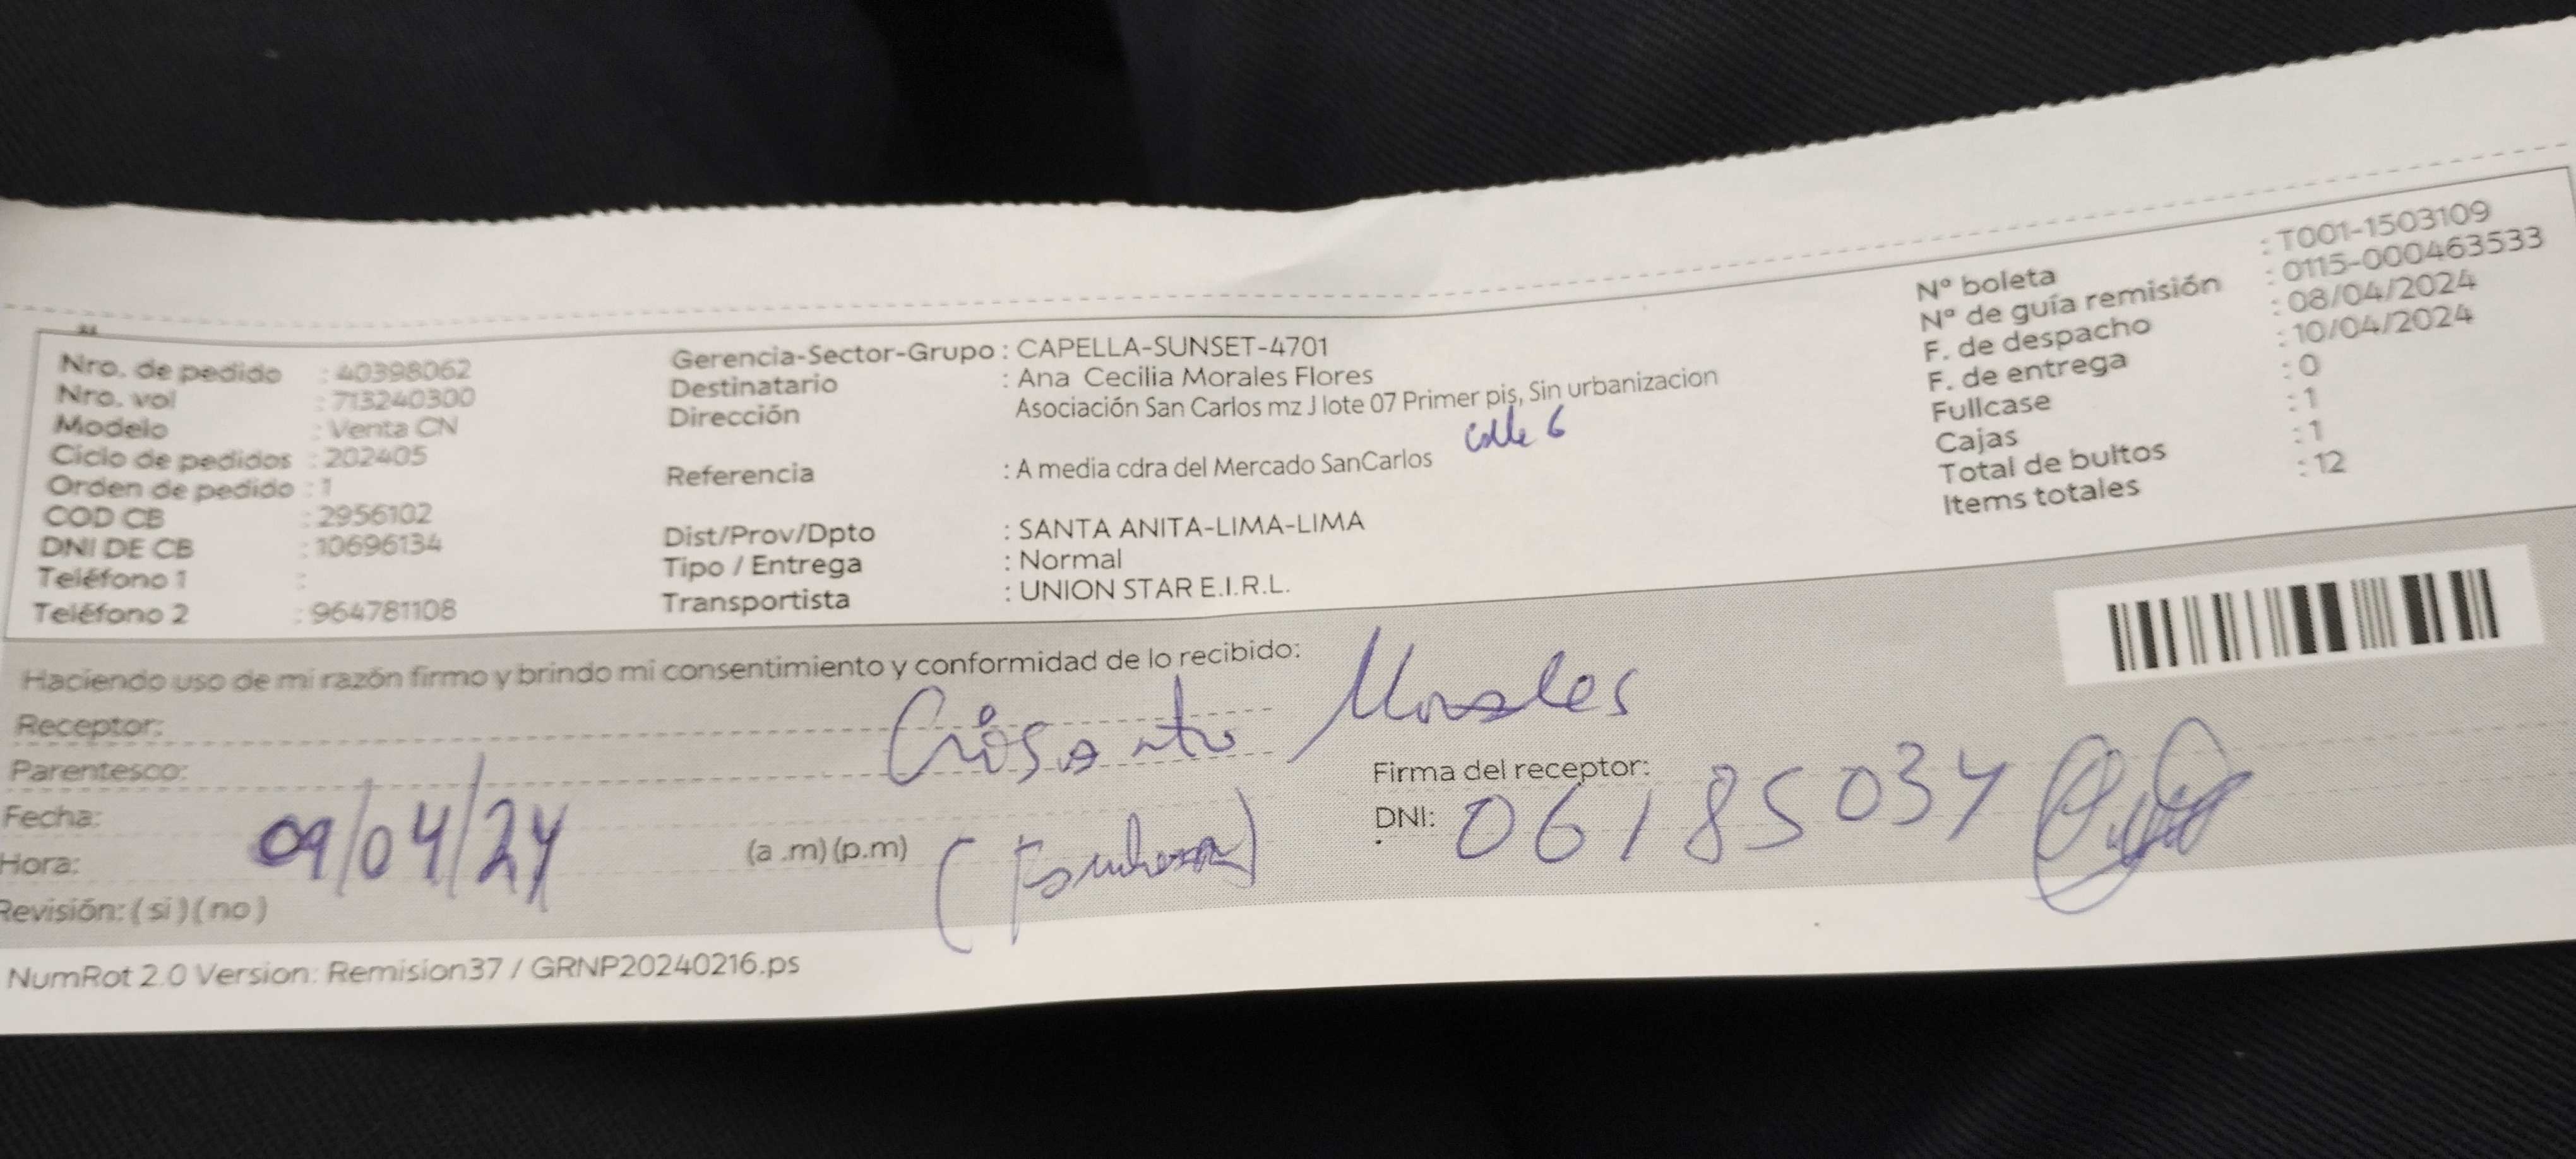 Nro. de pedido : 40398062
Nro. vol : 713240300
Modelo : Venta CN
Ciclo de pedidos : 202405
Orden de pedido : 1
COD CB : 2956102
DNI DE CB : 10696134
Teléfono 1 :
Teléfono 2 : 964781108
Gerencia-Sector-Grupo : CAPELLA-SUNSET-4701
Destinatario : Ana Cecilia Morales Flores
Dirección Asociación San Carlos mz J lote 07 Primer pis, Sin urbanizacion
calle 6
Referencia : A media cdra del Mercado SanCarlos
Dist/Prov/Dpto : SANTA ANITA-LIMA-LIMA
Tipo / Entrega : Normal
Transportista : UNION STAR E.I.R.L.
N° boleta : T001-1503109
N° de guía remisión : 0115-000463533
F. de despacho : 08/04/2024
F. de entrega : 10/04/2024
Fullcase : 0
Cajas : 1
Total de bultos : 1
Items totales : 12
Haciendo uso de mi razón firmo y brindo mi consentimiento y conformidad de lo recibido:
Receptor: Crisanto Morales
Parentesco:
Firma del receptor:
Fecha: 09/04/24
DNI: 06185034
Hora: (a .m) (p.m)
Revisión: ( si ) ( no )
NumRot 2.0 Version: Remision37 / GRNP20240216.ps